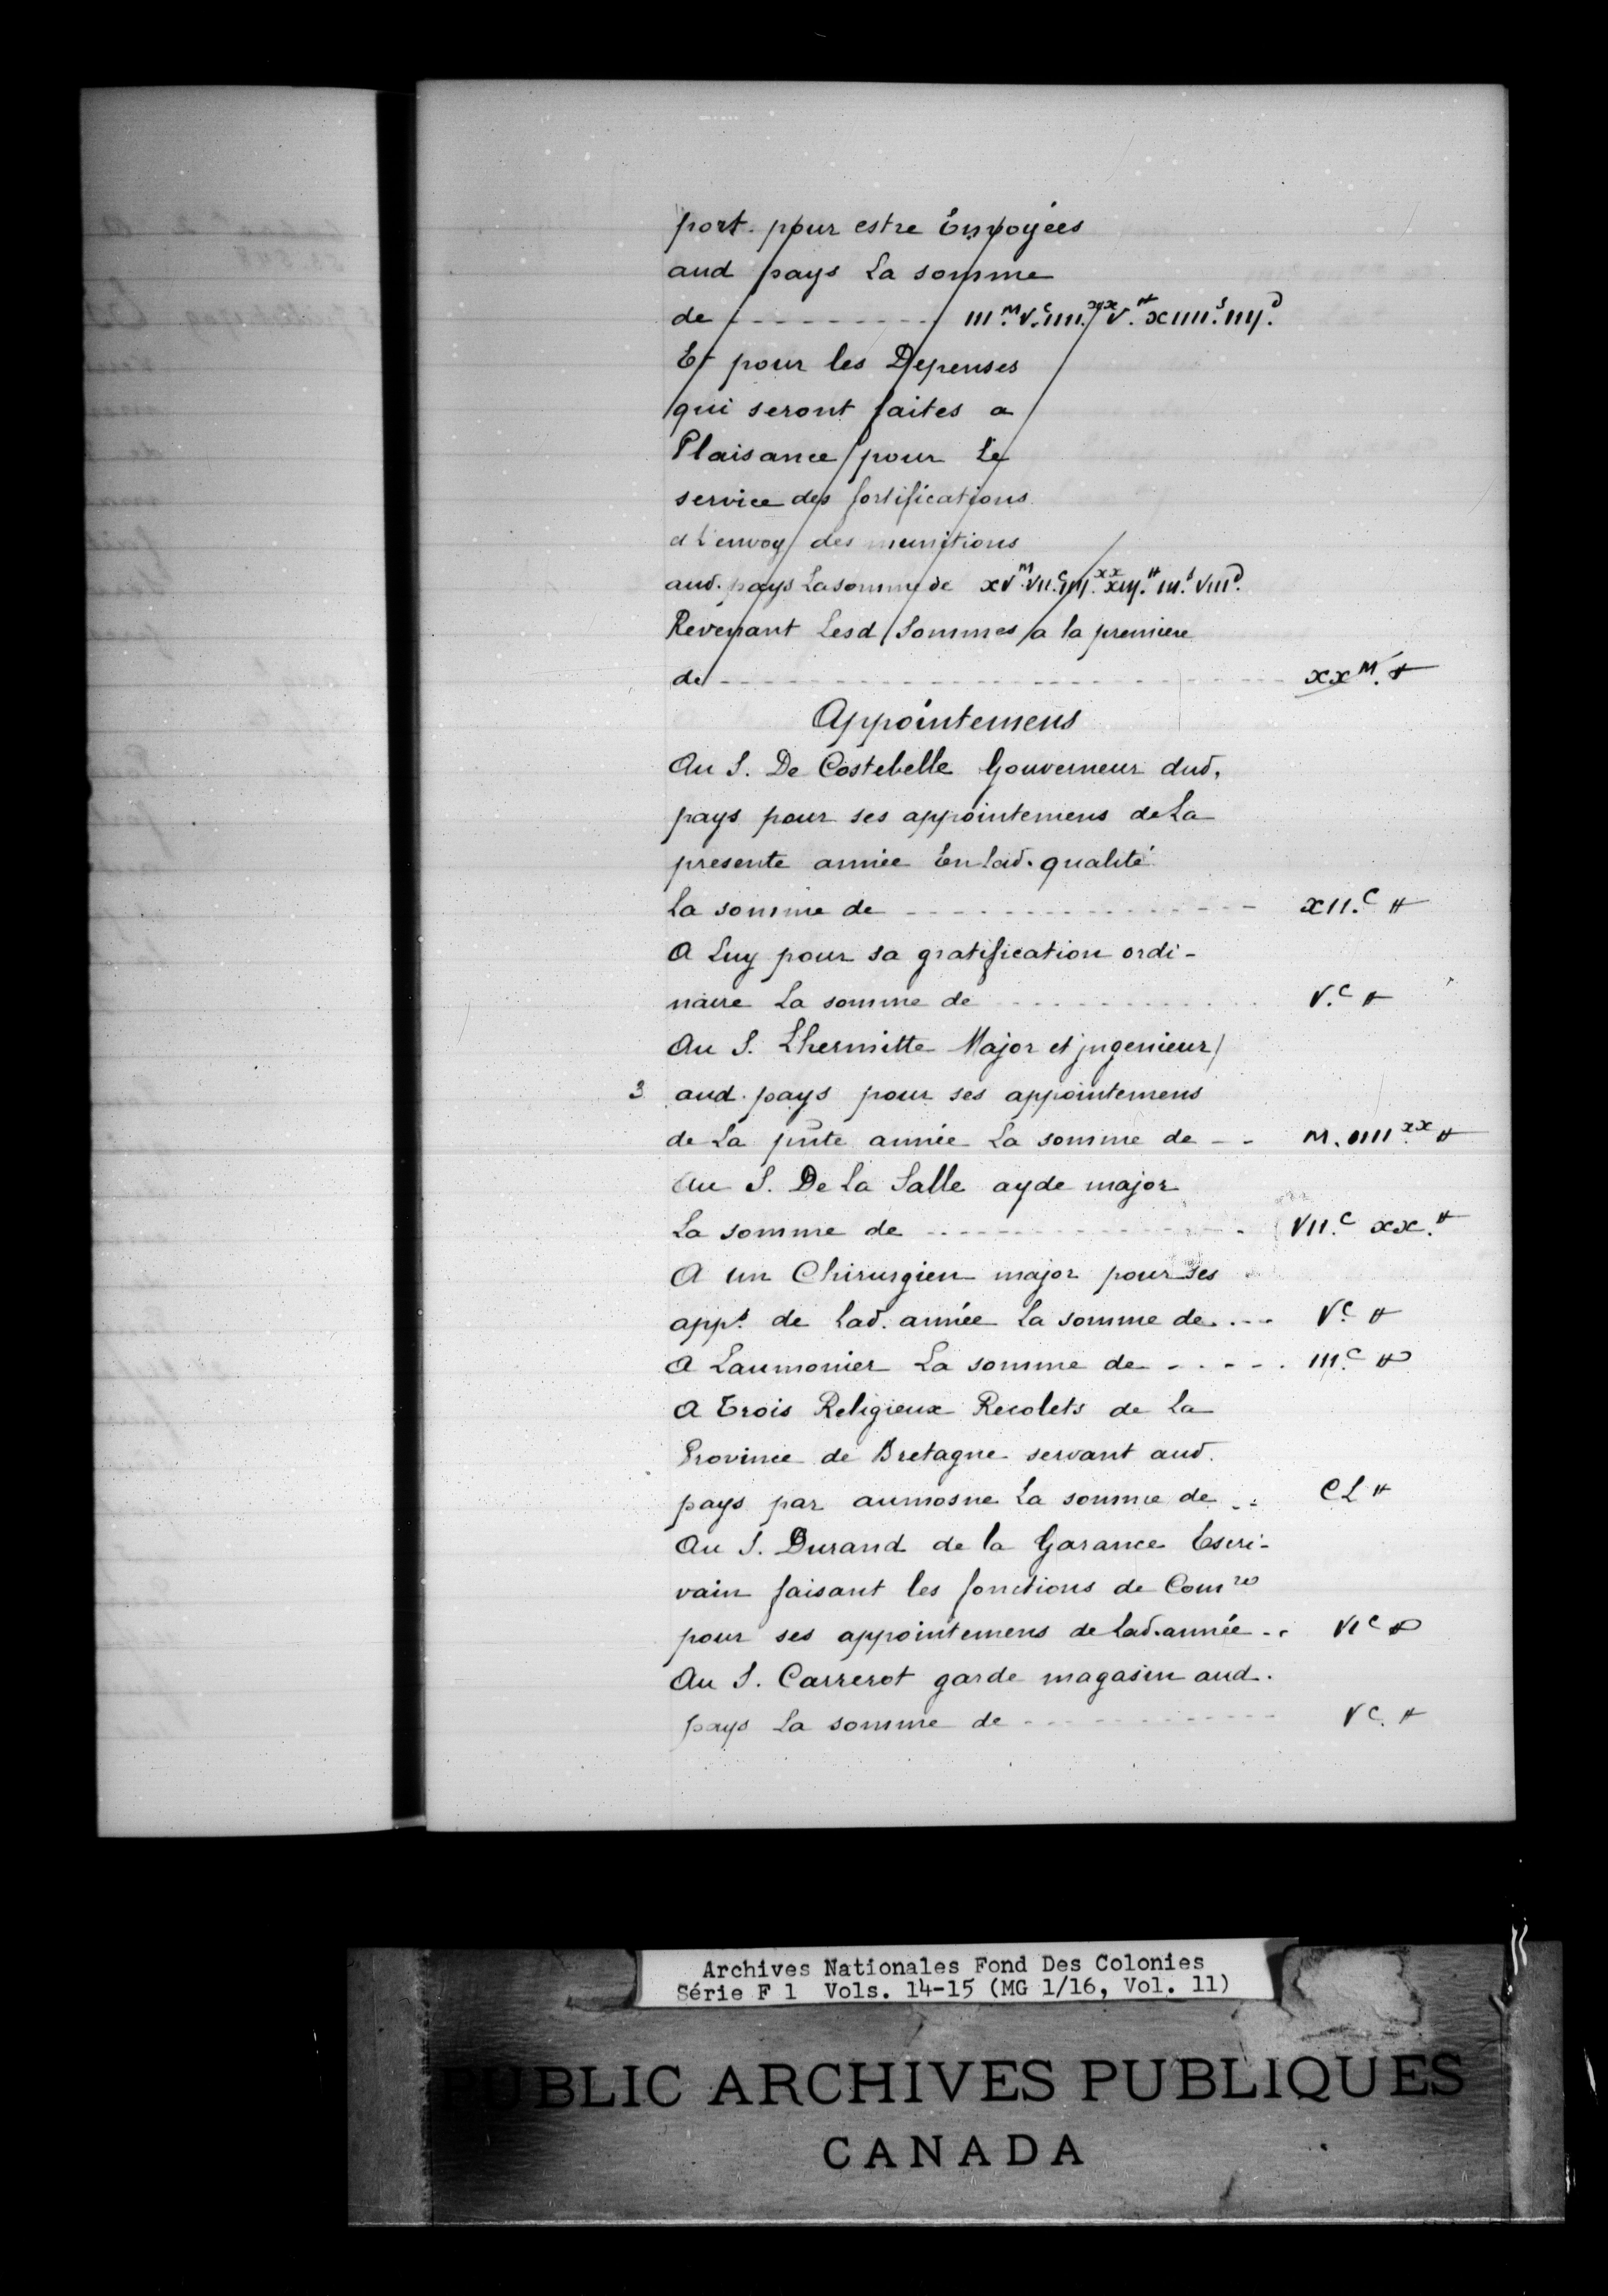 port pour estre Envoyées
aud pays La somme
de - - - - - - - - - III.ᴹ V.ᶜ IIII.ˣˣ V.ᴴ XIIII.ˢ IIIJ.ᵈ
Et pour les Depenses
qui seront faites a
Plaisance pour Le
service des fortifications
et L'envoy des munitions
aud. pays La somme de XVᴹ.VII.ᶜ IIIJ.ˣˣ XIIJ.ᴴ III.ˢ VIIIᵈ.
Revenant Lesd Sommes a la premiere
de - - - - - - - - - - - - - - - - - - - XXᴹ. ᴴ
Appointemens
Au S. De Costebelle Gouverneur dud.
pays pour ses appointemens de La
presente année En lad. qualité
La somme de - - - - - - - - - - - - XII.ᶜ ᴴ
A Luy pour sa gratification ordi-
naire La somme de - - - - - - - - - - V.ᶜ ᴴ
Au S. Lhermitte Major et jngenieur
3 aud. pays pour ses appointemens
de La pnte année La somme de - - M. IIIIˣˣ ᴴ
Au S. De La Salle ayde major
La somme de - - - - - - - - - - - VII.ᶜ XX.ᴴ
A un Chirurgien major pour ses
appˢ. de Lad. année La somme de. - - Vᶜ. ᴴ
A Laumonier La somme de - - - - - III.ᶜ ᴴ
A Trois Religieux Recolets de La
Province de Bretagne servant aud.
pays par aumosne La somme de - - CL ᴴ
Au S. Durand de la Garance Escri-
vain faisant les fonctions de Comʳᵉ
pour ses appointemens de Lad. année - - VIᶜ ᴴ
Au S. Carrerot garde magasin aud.
pays La somme de - - - - - - - - - - Vᶜ. ᴴ
Archives Nationales Fond Des Colonies
Série F 1 Vols. 14-15 (MG 1/16, Vol. 11)
PUBLIC ARCHIVES PUBLIQUES
CANADA